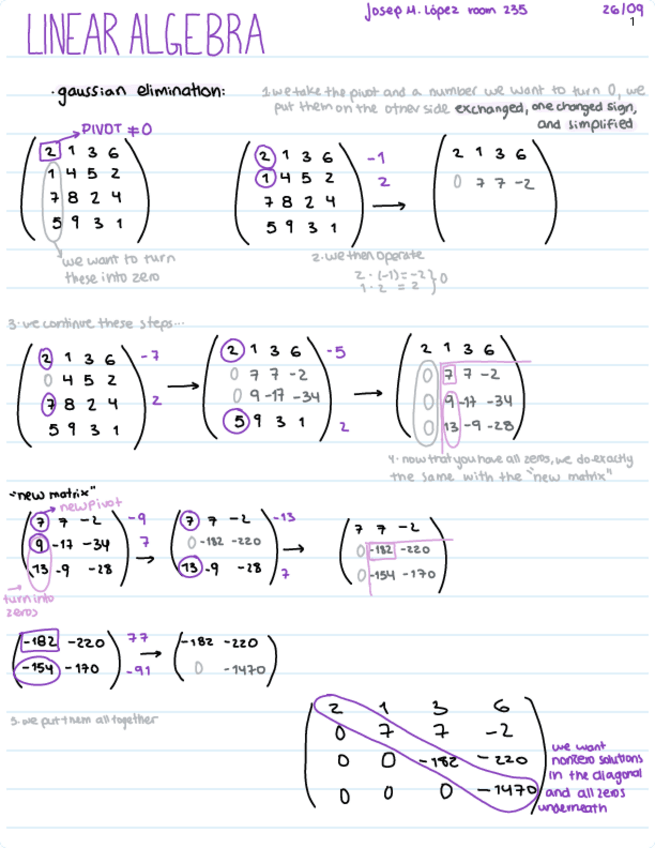 Josep M. López room 235 26/09
1
LINEAR ALGEBRA
· gaussian elimination:
1. we take the pivot and a number we want to turn 0, we
put them on the other side exchanged, one changed sign,
and simplified
PIVOT ≠ 0
2 1 3 6
1 4 5 2
7 8 2 4
5 9 3 1
we want to turn
these into zero
2 1 3 6 -1
1 4 5 2 2
7 8 2 4 →
5 9 3 1
2 1 3 6
0 7 7 -2
2. we then operate
2 · (-1) = -2
1 · 2 = 2 } 0
3. we continue these steps...
2 1 3 6 -7
0 4 5 2 →
7 8 2 4 2
5 9 3 1
2 1 3 6 -5
0 7 7 -2
0 9 -17 -34 →
5 9 3 1 2
2 1 3 6
0 7 7 -2
0 9 -17 -34
0 13 -9 -28
4. now that you have all zeros, we do exactly
the same with the "new matrix"
"new matrix"
new pivot
7 7 -2 -9
9 -17 -34 7
13 -9 -28 →
turn into
zeros
7 7 -2 -13
0 -182 -220 →
13 -9 -28 7
7 7 -2
0 -182 -220
0 -154 -170
-182 -220 77
-154 -170 -91 →
-182 -220
0 -1470
5. we put them all together
2 1 3 6
0 7 7 -2
0 0 -182 -220
0 0 0 -1470
we want
nonzero solutions
in the diagonal
and all zeros
underneath